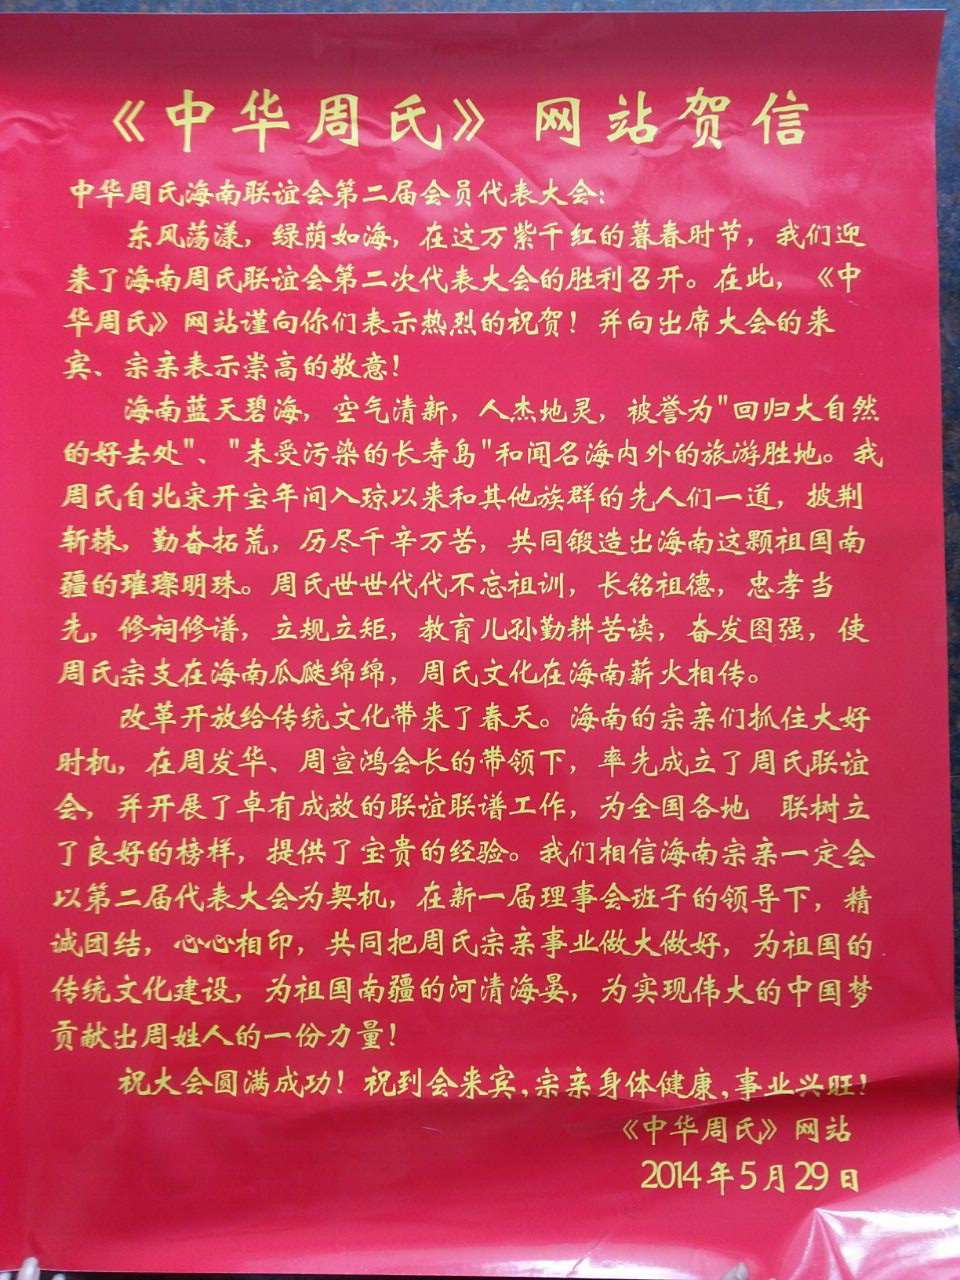 《中华周氏》网站贺信
中华周氏海南联谊会第二届会员代表大会:
东风荡漾，绿荫如海，在这万紫千红的暮春时节，我们迎
来了海南周氏联谊会第二次代表大会的胜利召开。在此，《中
华周氏》网站谨向你们表示热烈的祝贺！并向出席大会的来
宾、宗亲表示崇高的敬意！
海南蓝天碧海，空气清新，人杰地灵，被誉为"回归大自然
的好去处"、"未受污染的长寿岛"和闻名海内外的旅游胜地。我
周氏自北宋开宝年间入琼以来和其他族群的先人们一道，披荆
斩棘，勤奋拓荒，历尽千辛万苦，共同锻造出海南这颗祖国南
疆的璀璨明珠。周氏世世代代不忘祖训，长铭祖德，忠孝当
先，修祠修谱，立规立矩，教育儿孙勤耕苦读，奋发图强，使
周氏宗支在海南瓜瓞绵绵，周氏文化在海南薪火相传。
改革开放给传统文化带来了春天。海南的宗亲们抓住大好
时机，在周发华、周宣鸿会长的带领下，率先成立了周氏联谊
会，并开展了卓有成效的联谊联谱工作，为全国各地 联树立
了良好的榜样，提供了宝贵的经验。我们相信海南宗亲一定会
以第二届代表大会为契机，在新一届理事会班子的领导下，精
诚团结，心心相印，共同把周氏宗亲事业做大做好，为祖国的
传统文化建设，为祖国南疆的河清海晏，为实现伟大的中国梦
贡献出周姓人的一份力量！
祝大会圆满成功！祝到会来宾,宗亲身体健康,事业兴旺！
《中华周氏》网站
2014年5月29日